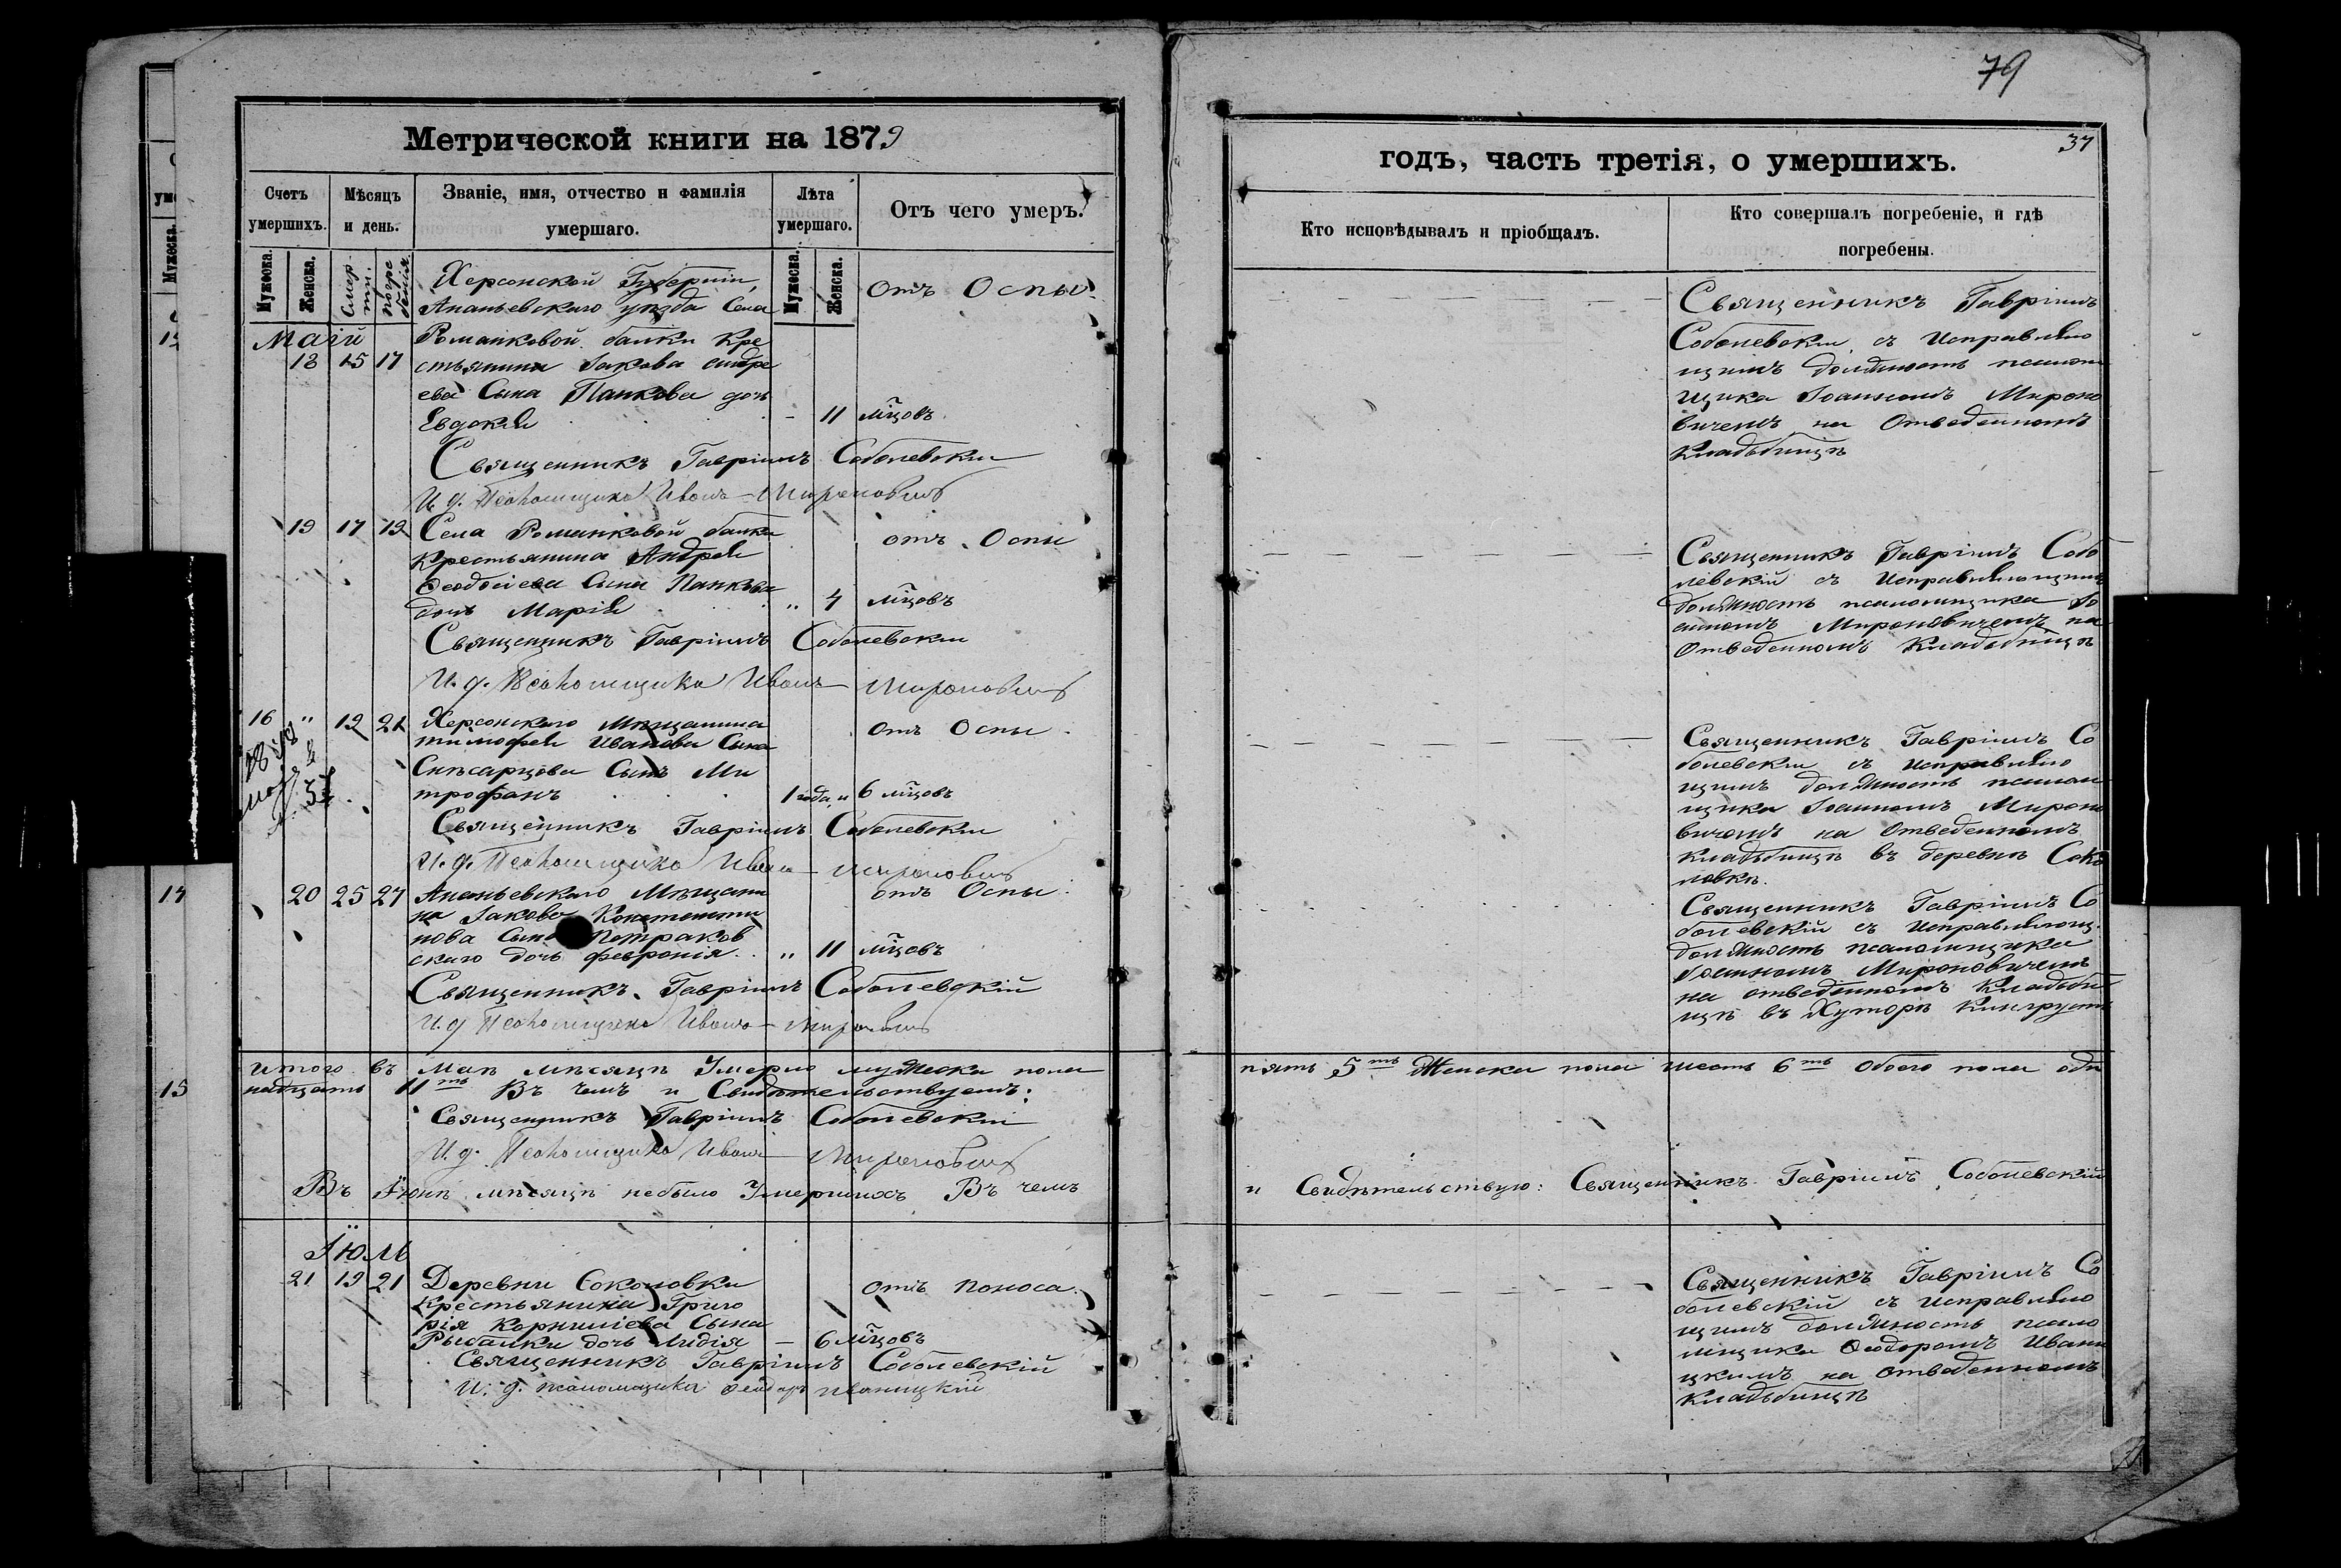 79
37
Метрической книги на 1879
годъ, часть третія, о умершихъ.
Счетъ умершихъ.
Мѣсяцъ и день.
Званіе, имя, отчество и фамилія умершаго.
Лѣта умершаго.
Отъ чего умеръ.
Кто исповѣдывалъ и пріобщалъ.
Кто совершалъ погребеніе, и гдѣ погребены.
Мужеска.
Женска.
Смерти.
погребенія.
Мужеска.
Женска.
Маій
18 15 17
Херсонской Губерніи,
Ананьевскаго уѣзда Села
Романковой балки Кре
стьянина Іакова Андре
ева Сына Панкова дочь
Евдокія - 11 мцовъ
Отъ Оспы.
Священникъ Гавріилъ
Соболевскій съ Исправляю
щимъ должность псалом
щика Іоанномъ Мироно
вичемъ на Отведенномъ
Кладбищѣ
Священникъ Гавріилъ Соболевскій
И. д. Псаломщика Иванъ Мироновичъ
19 17 19
Села Романковой балки
Крестьянина Андрея
Ѳеодосіева Сына Панкова
дочь Марія „ 4 мцовъ
отъ Оспы
Священникъ Гавріилъ Собо
левскій съ Исправляющимъ
должность псаломщика Іо
анномъ Мироновичемъ на
Отведенномъ Кладбищѣ
Священникъ Гавріилъ Соболевскій
И. д. Псаломщика Иванъ Мироновичъ
16 „ 19 21
Херсонскаго Мѣщанина
Тимофея Иванова Сына
Слѣсарцова Сынъ Ми
трофанъ 1 года и 6 мцовъ
отъ Оспы
Священникъ Гавріилъ Со
болевскій съ Исправляю
щимъ должность псалом
щика Іоанномъ Мироно
вичемъ на Отведенномъ
кладбищѣ въ деревнѣ Соко
ловкѣ.
Священникъ Гавріилъ Соболевскій
И. д. Псаломщика Иванъ Мироновичъ
20 25 27
Ананьевскаго Мѣщани
на Іакова Константи
нова Сына Петраков
скаго дочь Февронія „ 11 мцовъ
отъ Оспы
Священникъ Гавріилъ Со
болевскій съ Исправляющ.
должность псаломщика
Іоанномъ Мироновичемъ
на отведенномъ Кладби
щѣ въ Хуторѣ
Священникъ Гавріилъ Соболевскій
И. д Псаломщика Иванъ Мироновичъ
Итого въ Маѣ мѣсяцѣ Умерло мужеска пола пять 5ть Женска пола шесть 6ть Обоего пола оди
надцать 11ть Въ чемъ и Свидѣтельствуемъ:
Священникъ Гавріилъ Соболевскій
И. д. Псаломщика Иванъ Мироновичъ
Въ Іюнѣ мѣсяцѣ небыло Умершихъ Въ чемъ и Свидѣтельствую: Священникъ Гавріилъ Соболевскій
Іюль
21 19 21
Деревни Соколовки
Крестьянина Григо
рія Корниліева Сына
Рыбалки дочь Лидія — 6 мцовъ
отъ поноса.
Священникъ Гавріилъ Со
болевскій съ Исправляю
щимъ должность псало
мщика Ѳеодоромъ Ивани
цкимъ на Отведенномъ
Кладбищѣ
Священникъ Гавріилъ Соболевскій
И. д. псаломщика Ѳеодоръ Иваницкій